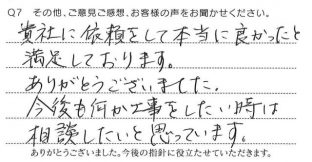 Q7 その他、ご意見ご感想、お客様の声をお聞かせください。
貴社に依頼をして本当に良かったと
満足しております。
ありがとうございました。
今後も何か工事をしたい時は
相談したいと思っています。
ありがとうございました。今後の指針に役立たせていただきます。